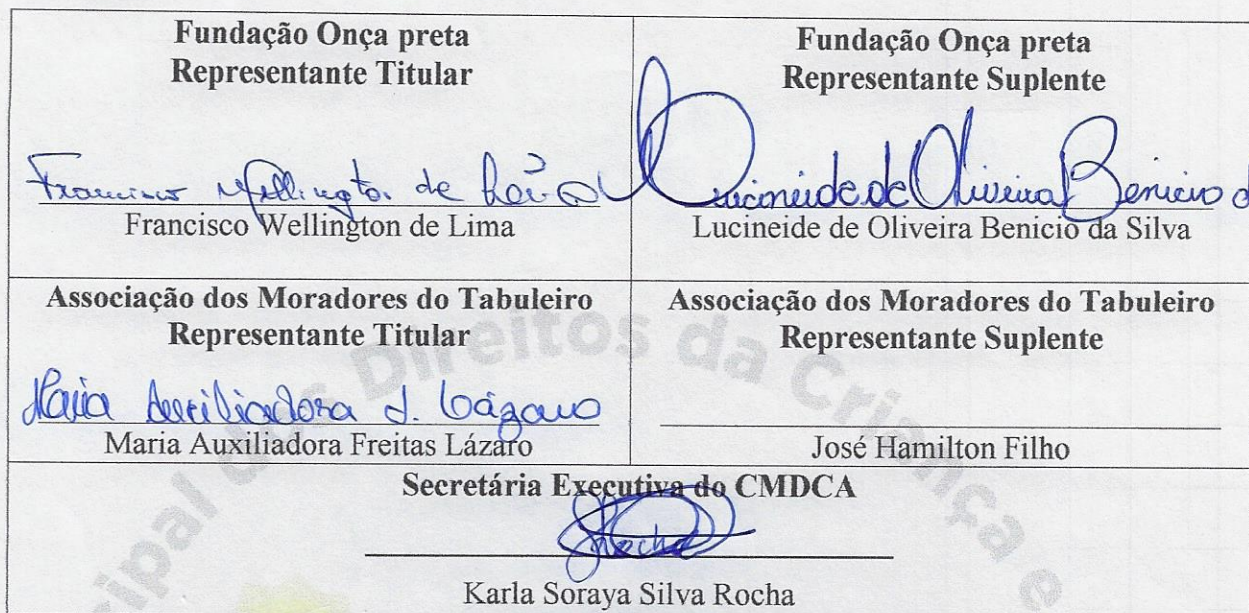 Fundação Onça preta
Representante Titular
Francisco Wellington de Lima
Francisco Wellington de Lima
Fundação Onça preta
Representante Suplente
Lucineide de Oliveira Benicio d
Lucineide de Oliveira Benicio da Silva
Associação dos Moradores do Tabuleiro
Representante Titular
Maria Auxiliadora f. Lázaro
Maria Auxiliadora Freitas Lázaro
Associação dos Moradores do Tabuleiro
Representante Suplente
José Hamilton Filho
Secretária Executiva do CMDCA
SRocha
Karla Soraya Silva Rocha
cipal dos Direitos da Criança e